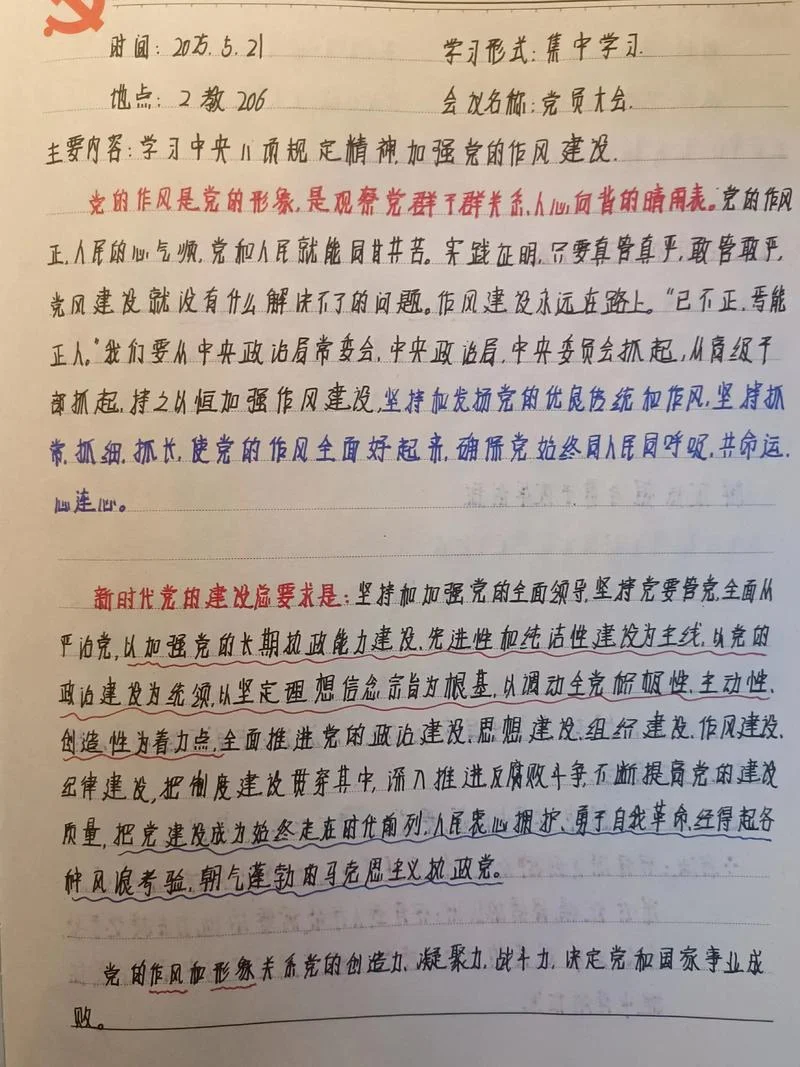 时间：2025.5.21 学习形式：集中学习.
地点：2教206 会议名称：党员大会.
主要内容：学习中央八项规定精神,加强党的作风建设.
党的作风是党的形象,是观察党群干群关系、人心向背的晴雨表。党的作风
正,人民的心气顺,党和人民就能同甘共苦。实践证明,只要真管真严,敢管敢严,
党风建设就没有什么解决不了的问题。作风建设永远在路上。“己不正,焉能
正人。”我们要从中央政治局常委会、中央政治局、中央委员会抓起,从高级干
部抓起,持之以恒加强作风建设,坚持和发扬党的优良传统和作风,坚持抓
常、抓细、抓长,使党的作风全面好起来,确保党始终同人民同呼吸、共命运、
心连心。
新时代党的建设总要求是：坚持和加强党的全面领导,坚持党要管党、全面从
严治党,以加强党的长期执政能力建设、先进性和纯洁性建设为主线,以党的
政治建设为统领,以坚定理想信念宗旨为根基,以调动全党积极性、主动性、
创造性为着力点,全面推进党的政治建设、思想建设、组织建设、作风建设、
纪律建设,把制度建设贯穿其中,深入推进反腐败斗争,不断提高党的建设
质量,把党建设成为始终走在时代前列、人民衷心拥护、勇于自我革命、经得起各
种风浪考验、朝气蓬勃的马克思主义执政党。
党的作风和形象关系党的创造力、凝聚力、战斗力,决定党和国家事业成
败。